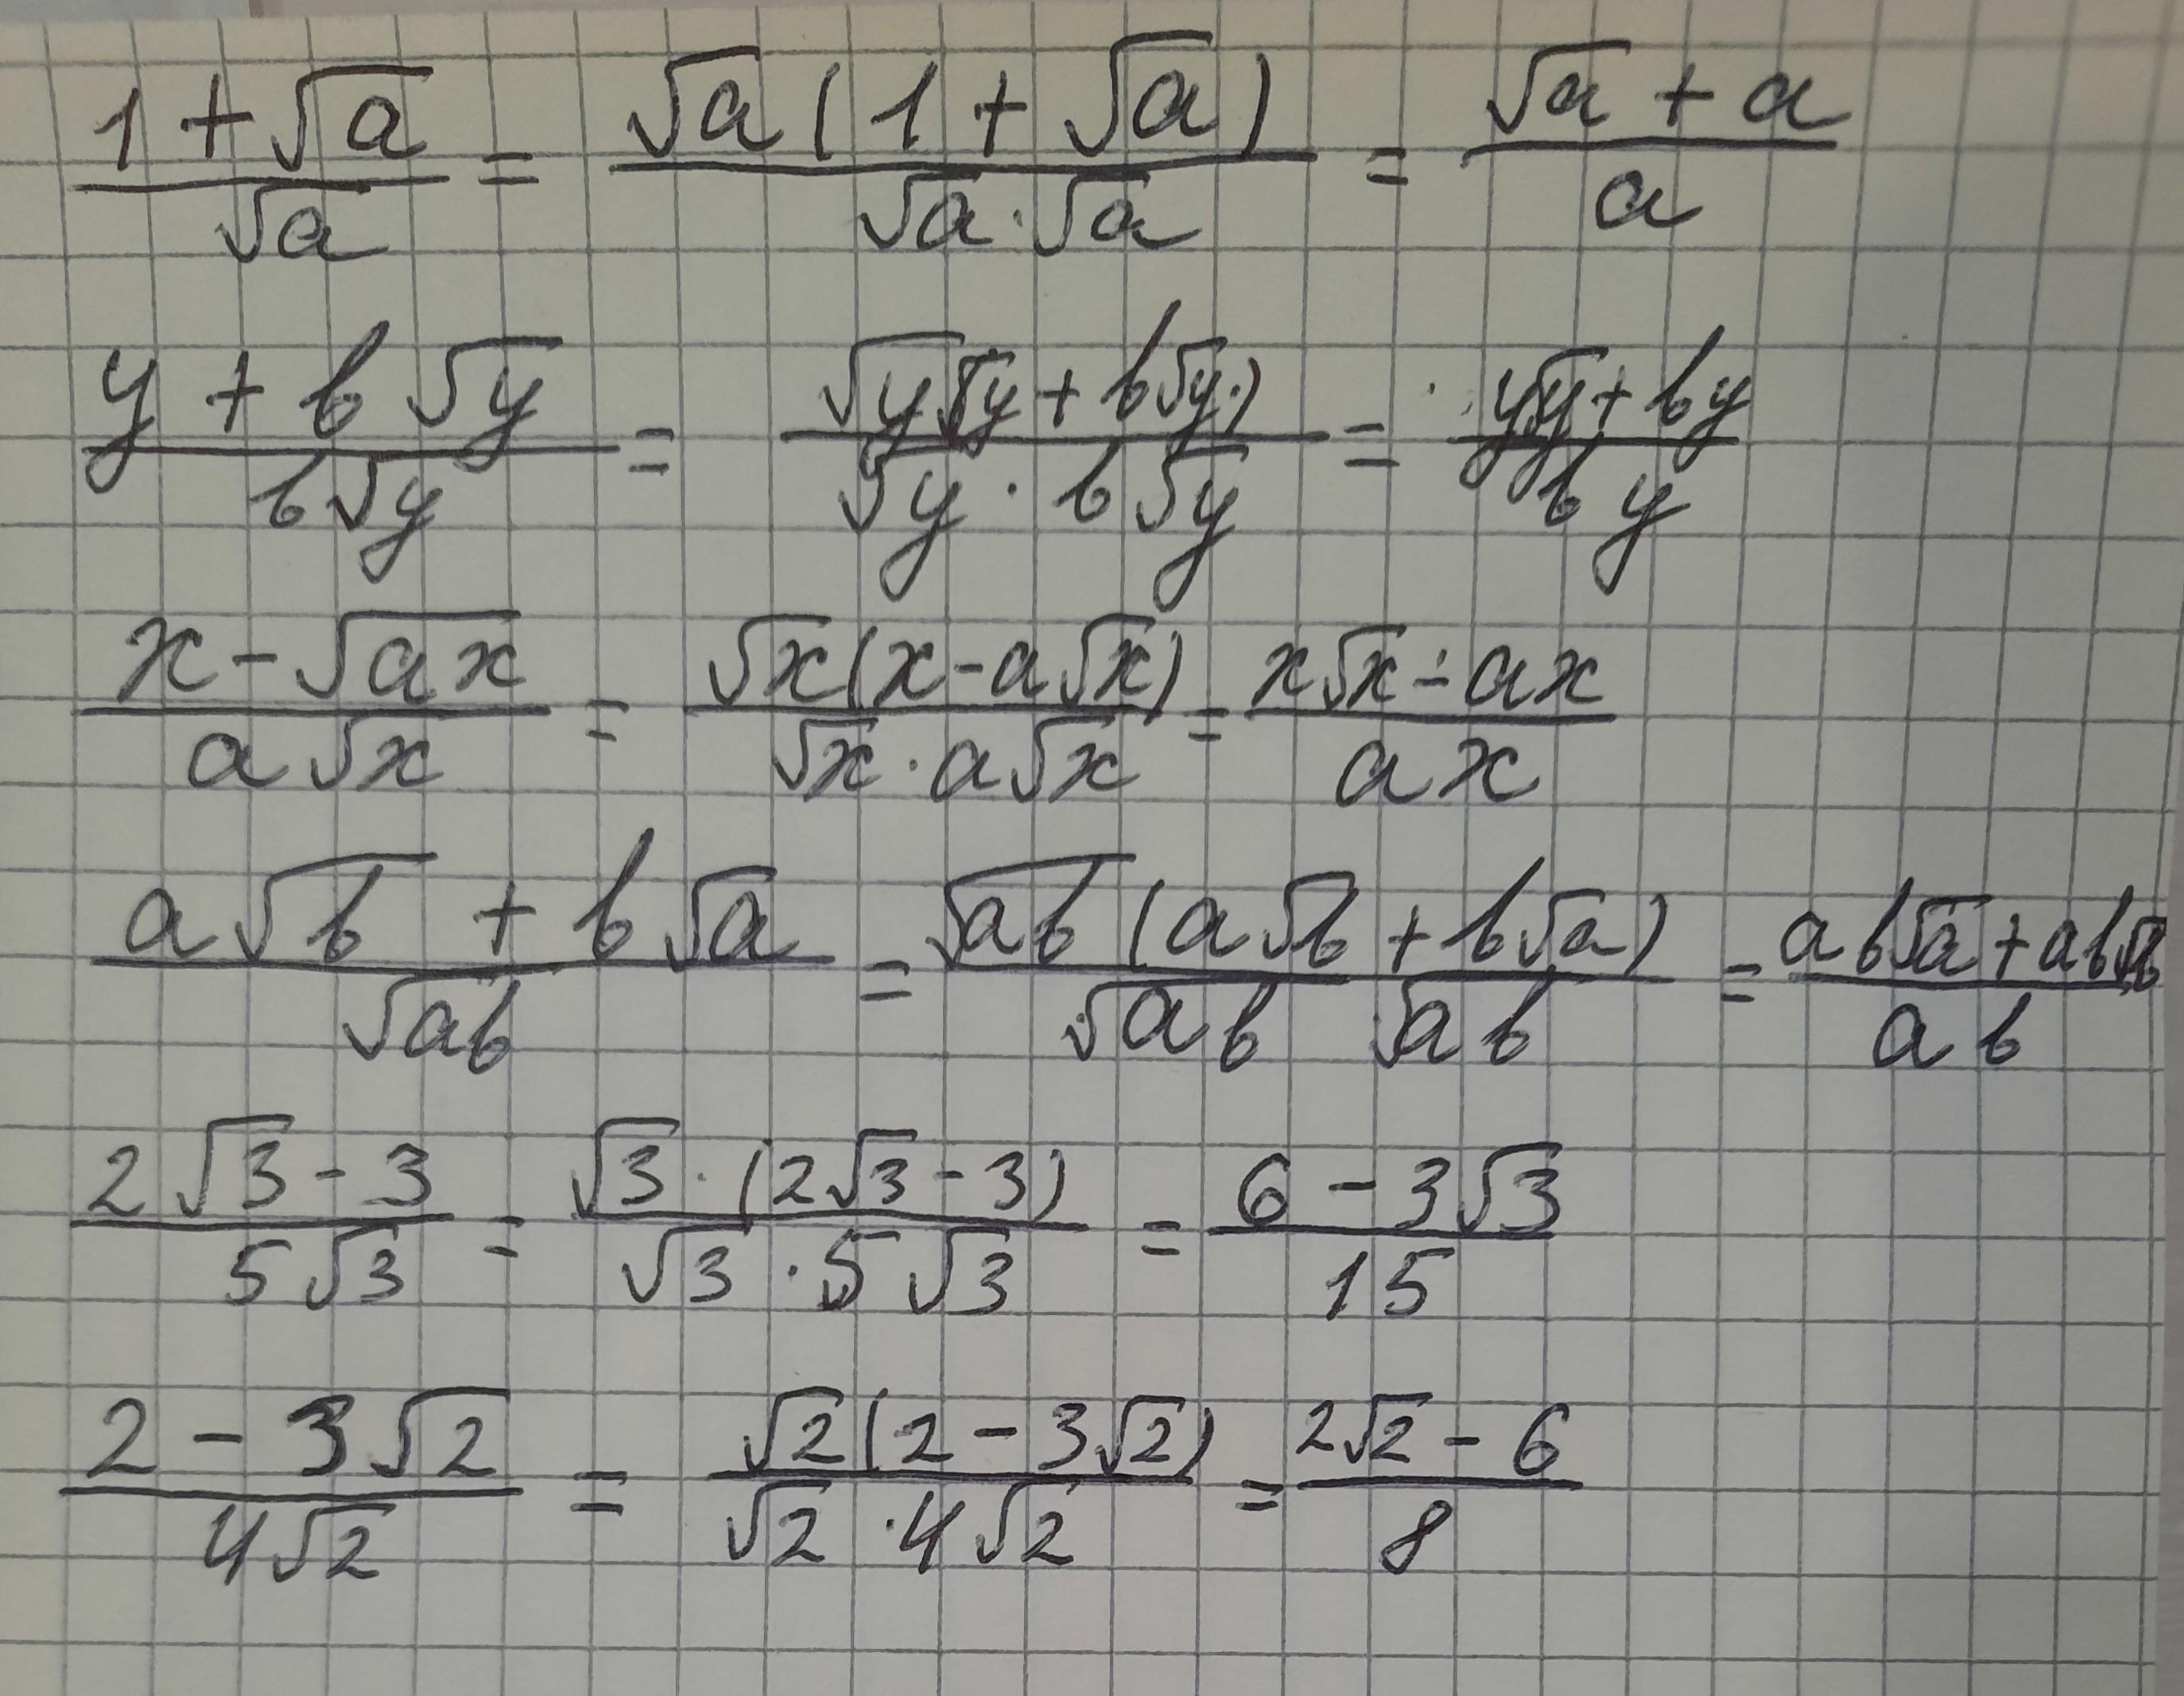 (1 + √a)/√a = (√a(1 + √a))/(√a · √a) = (√a + a)/a
(y + b√y)/(b√y) = (√y(y + b√y))/(√y · b√y) = (y√y + by)/(by)
(x - √(ax))/(a√x) = (√x(x - a√x))/(√x · a√x) = (x√x - ax)/(ax)
(a√b + b√a)/√(ab) = (√(ab)(a√b + b√a))/(√(ab) √(ab)) = (ab√a + ab√b)/(ab)
(2√3 - 3)/(5√3) = (√3 · (2√3 - 3))/(√3 · 5√3) = (6 - 3√3)/15
(2 - 3√2)/(4√2) = (√2(2 - 3√2))/(√2 · 4√2) = (2√2 - 6)/8